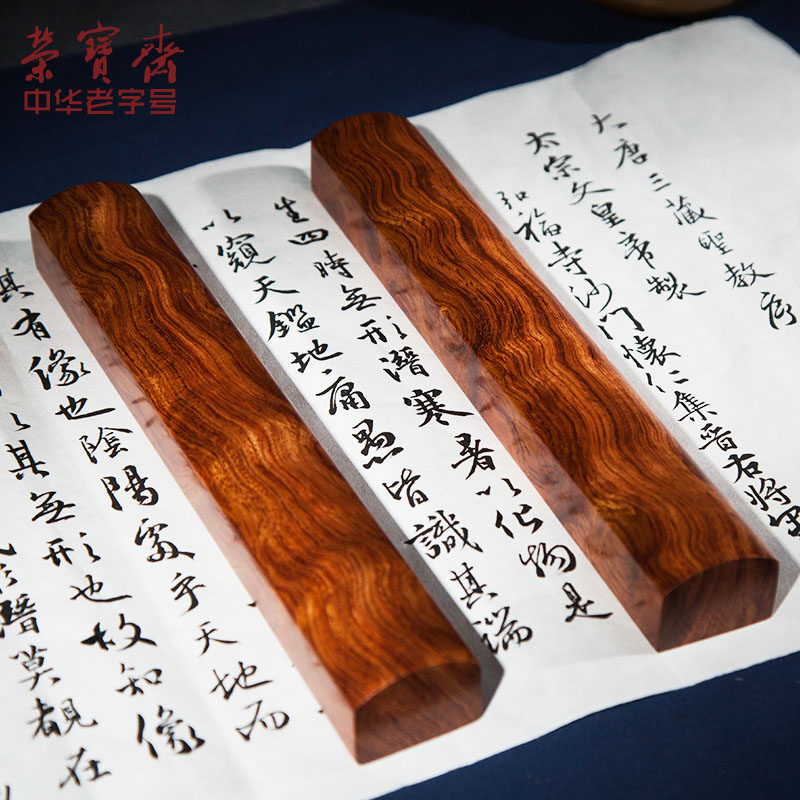 榮寶齋
中华老字号
大唐三藏聖教序
太宗文皇帝製
弘福寺沙门懷仁集晋右将軍
生四時無形潛寒暑以化物是
以窺天鑑地庸愚皆識其端
其有像也陰陽處乎天地而
以其無形也故知像
潛莫覩在